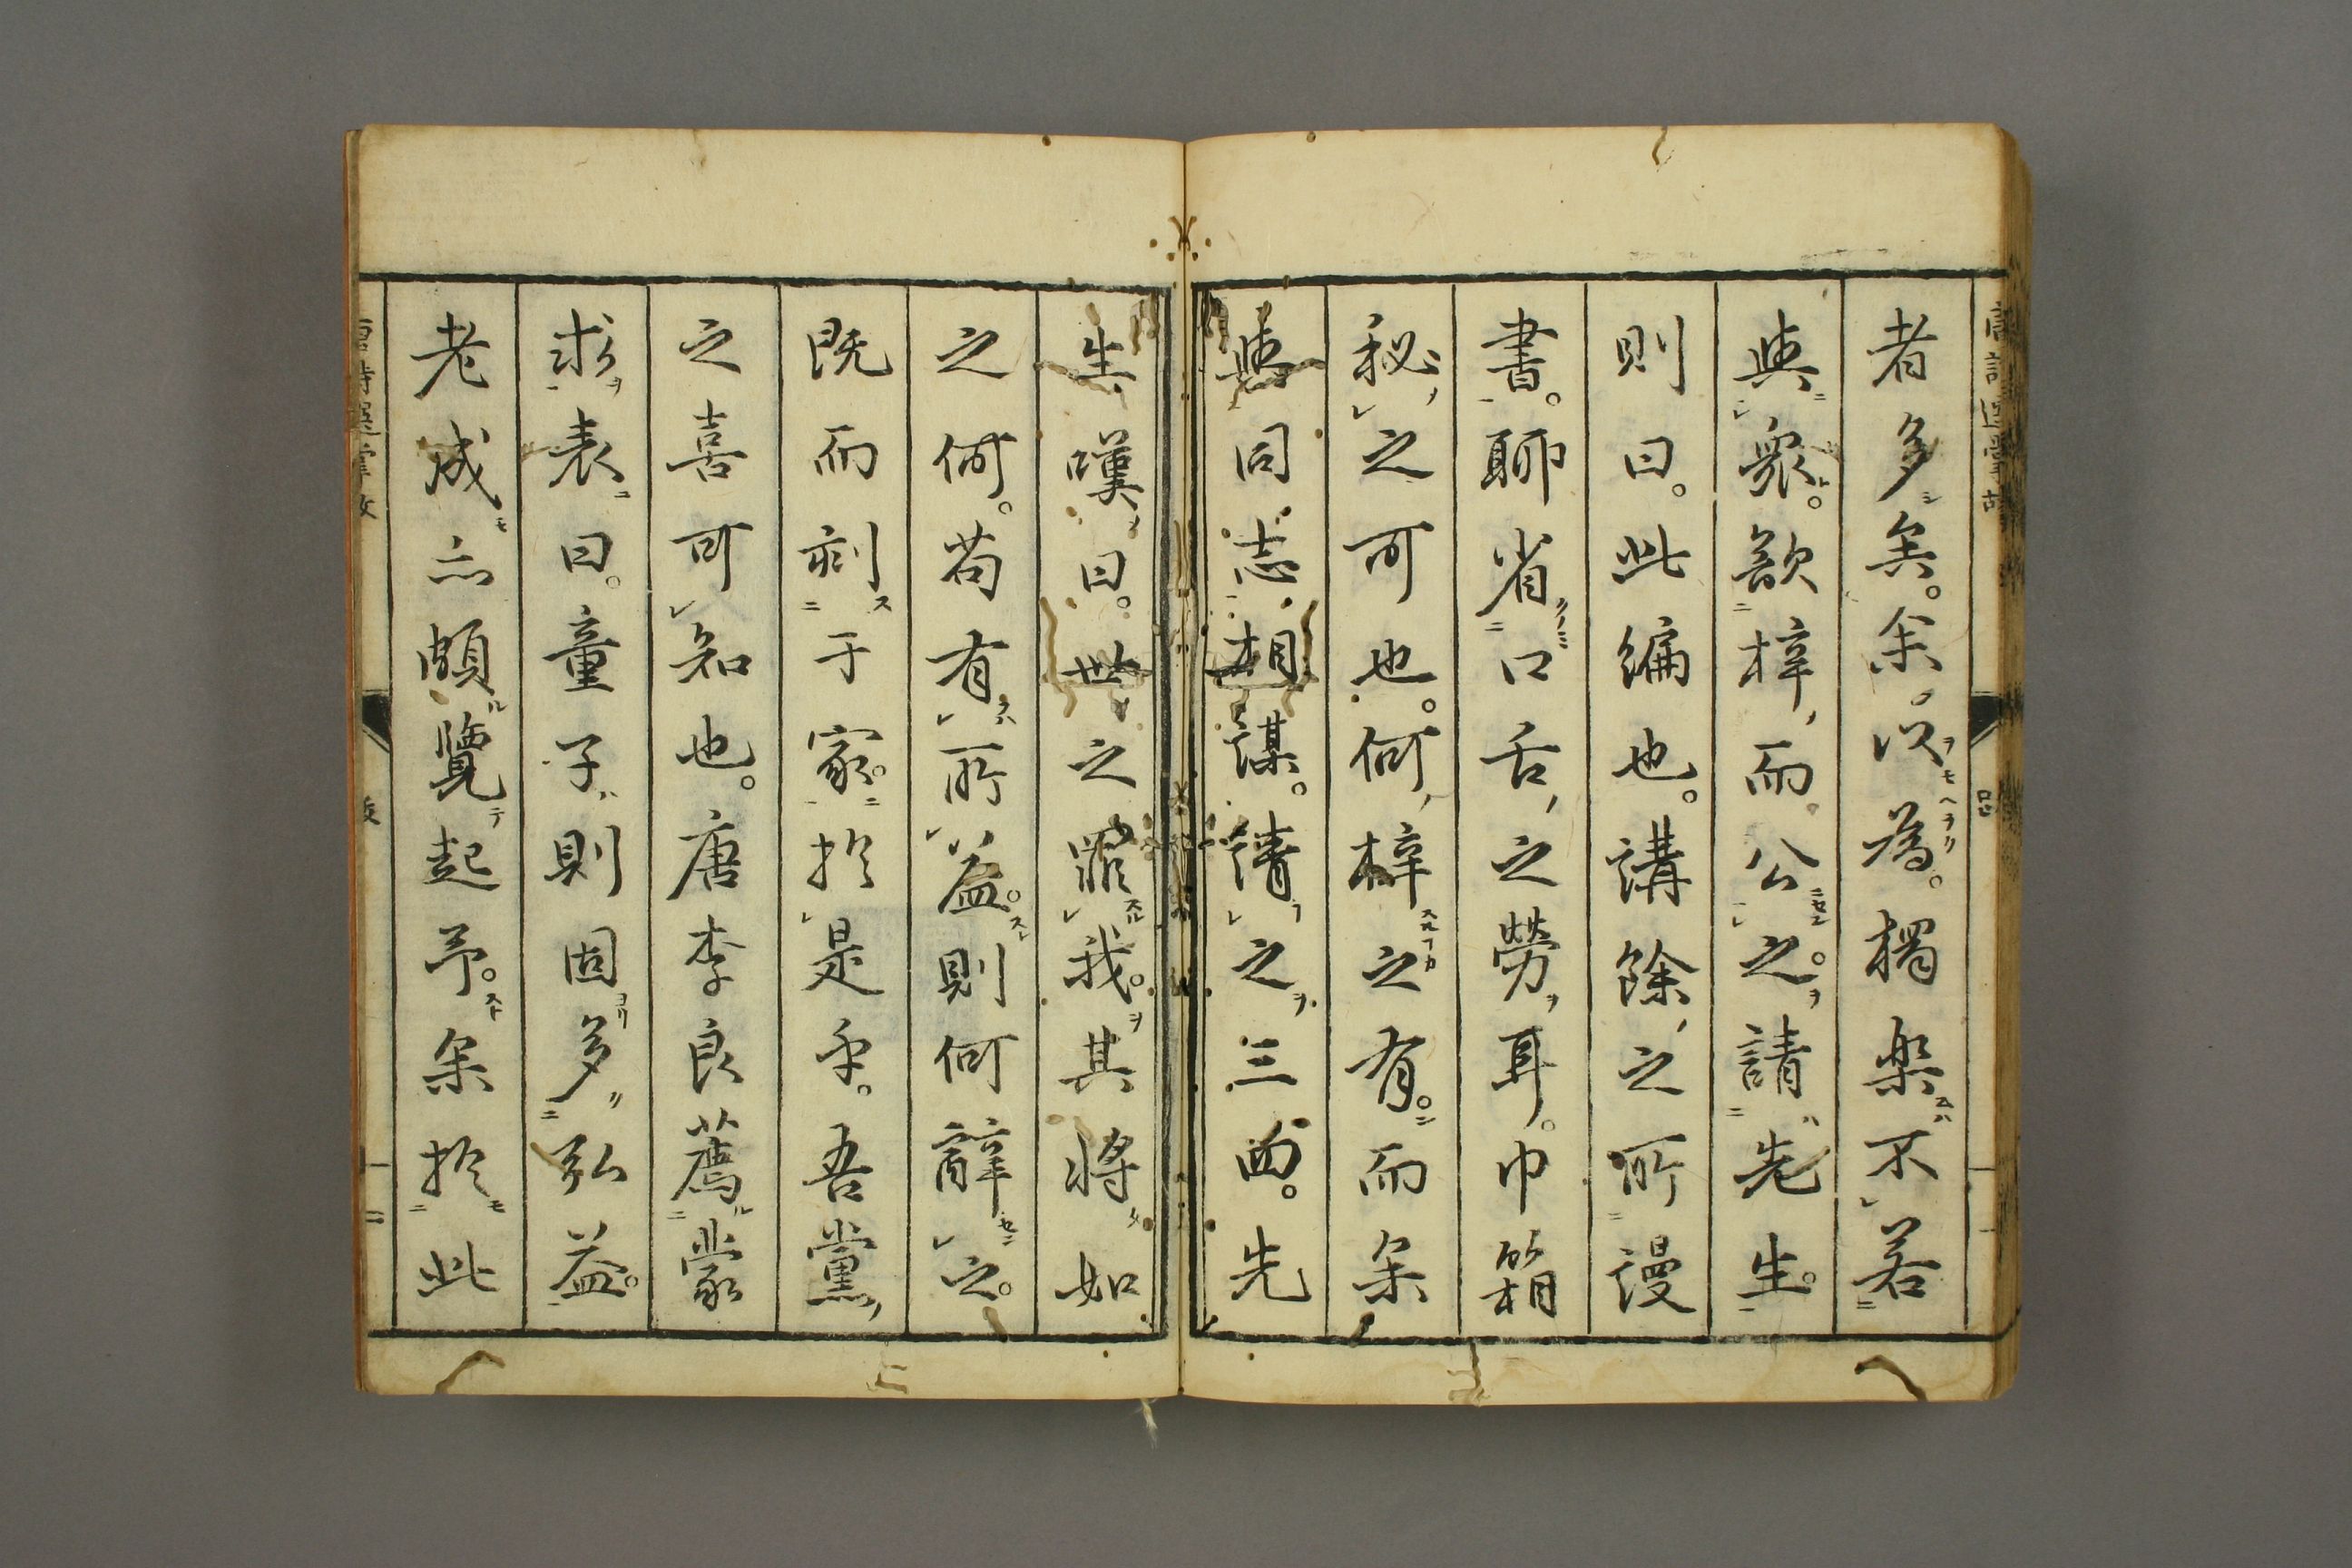 者多矣。余以為。独楽不若
與衆。欲梓而公之。請先生。
則曰。此編也。講餘之所謾
書。聊省口舌之勞耳。巾箱
秘之可也。何梓之有。而余
與同志相謀。請之三四。先
生嘆曰。世之罪我。其將如
之何。苟有所益。則何辭之。
既而刻于家。於是乎。吾黨
之喜可知也。唐李良薦蒙
求表曰。童子則固多弘益。
老成亦頗覽起予。余於此